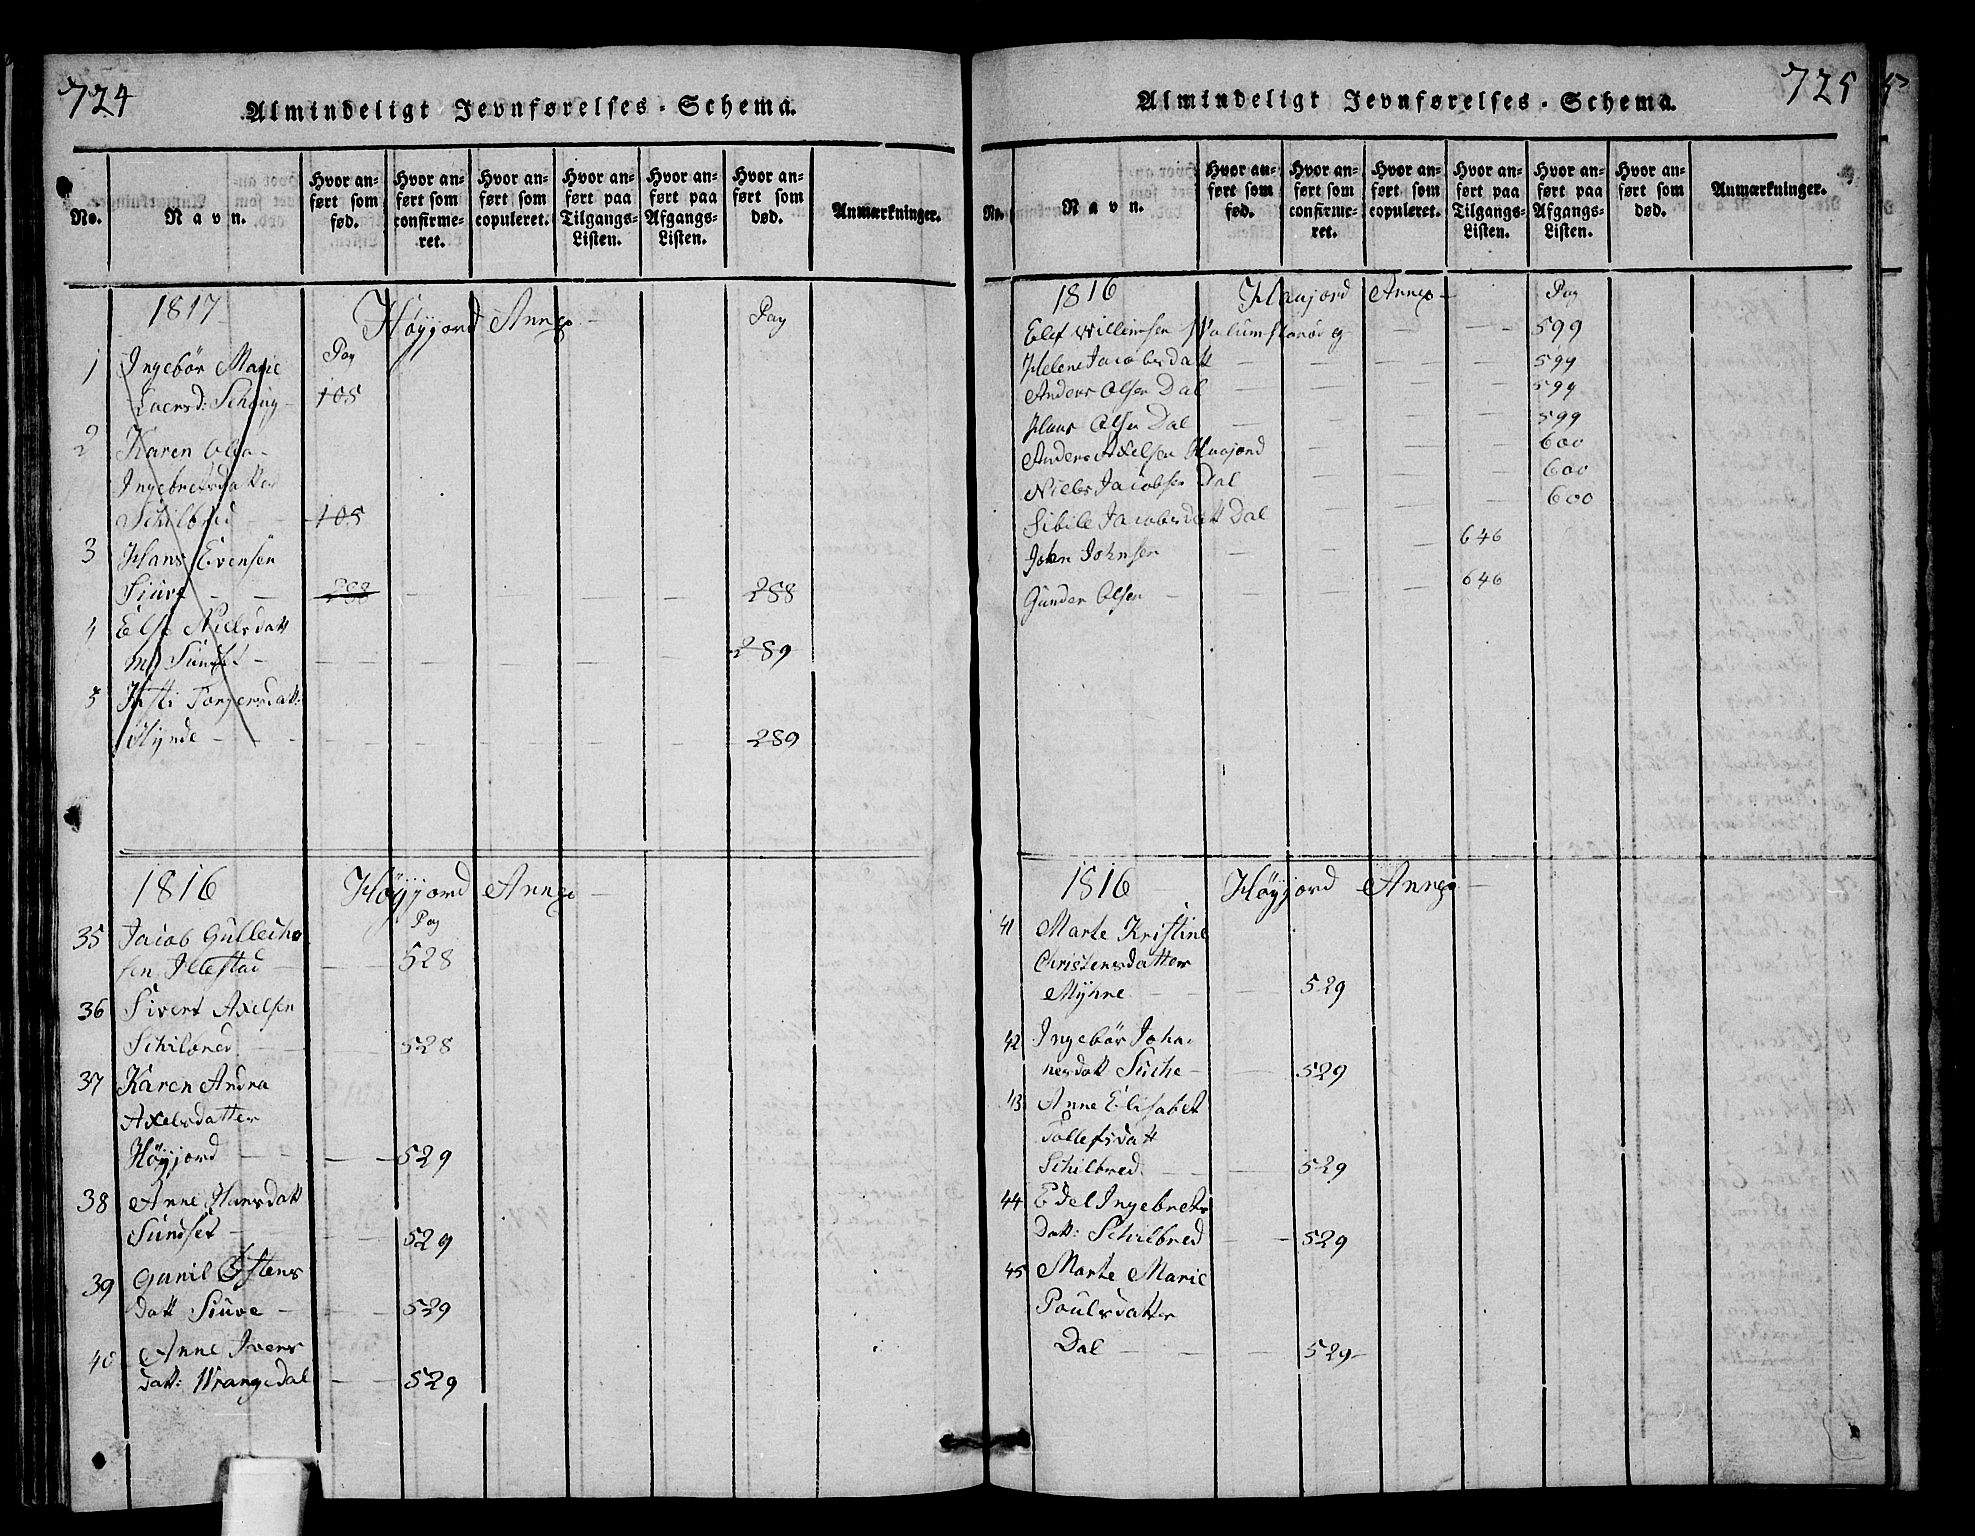 724
Almindeligt Jevnførelses-Schema.
No.
Navn.
Hvor an-
ført som
fød.
Hvor an-
ført som
confirme-
ret.
Hvor an-
ført som
copuleret.
Hvor an-
ført paa
Tilgangs-
Listen.
Hvor an-
ført paa
Afgangs-
Listen.
Hvor an-
ført som
død.
Anmærkninger.
1817 Höyjord Annex Pag
1 Ingebör Marie Pag
105
2 Karen
Ingebretsdatter
Schilbred 105
3 Hans Evensen
288 288
4 Else Nielsdatt
289
5 Torgersdatt:
289
1816 Höyjord Annex
Pag
35 Jacob
sen Illestad 528
36 Sivert Axelsen
Schilbred 528
37 Karen Andrea
Axelsdatter
Höyjord 529
38 Anne Hansdatt
Sundset 529
39 Gunil Östens
datt Siuve 529
40 Anne Ivers
datt: Wrangedal 529
725
Almindeligt Jevnførelses-Schema.
No.
Navn.
Hvor an-
ført som
fød.
Hvor an-
ført som
confirme-
ret.
Hvor an-
ført som
copuleret.
Hvor an-
ført paa
Tilgangs-
Listen.
Hvor an-
ført paa
Afgangs-
Listen.
Hvor an-
ført som
død.
Anmærkninger.
1816 Annex Pag
Elef Willumsen 599
Helene Jacobsdatt 599
Anders Olsen Dal 599
Hans Olsen Dal 599
Anders Axelsen 600
Niels Jacobsen Dal 600
Sibille Jacobsdatt Dal 600
John Johnsen 646
Gunder Olsen 646
1816 Höyjord Annex
41 Marte Kristine
Christensdatter
Myhre 529
42 Ingebör Joha
nesdatt 529
43 Anne Elisabet
Tollefsdatt
Schilbred 529
44 Edel Ingebrets
datt: Schilbred 529
45 Marte Marie
Poulsdatter
Dal 529